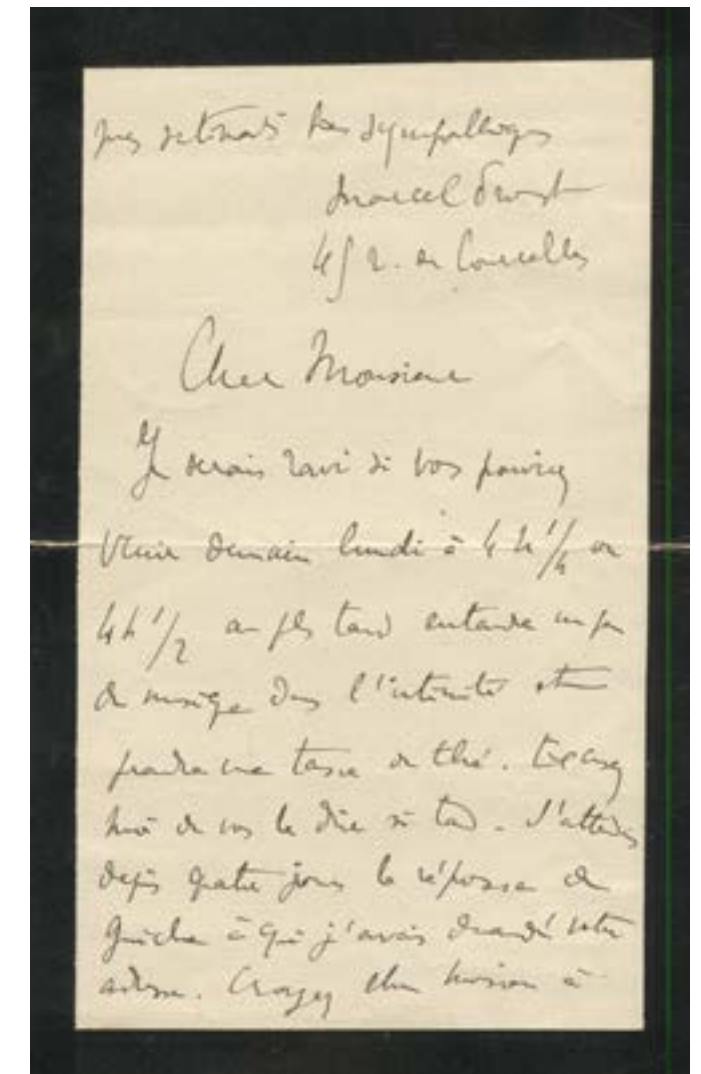 mes sentiments les sympathiques
Marcel Proust
45 r. de Courcelles
Cher Monsieur
Je serais ravi si vous pouviez
venir demain lundi à 4 h 1/4 ou
4 h 1/2 au plus tard entendre un peu
de musique dans l'intimité et
prendre une tasse de thé. Excusez
moi de vous le dire si tard. J'attends
depuis quatre jours la réponse de
Guiche à qui j'avais demandé votre
adresse. Croyez cher Monsieur à